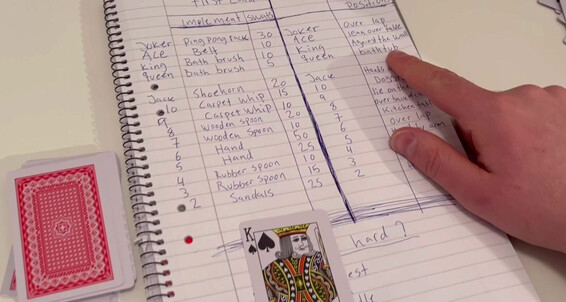 First Card
Implement swats Positions
Joker Ping Pong 30 Joker Over lap
ACE Belt 10 Ace lean over table
King Bath brush 10 King the wall
Queen Bath brush 5 queen bathtub
Jack Shoehorn 20 Jack Hands
10 Carpet whip 15 10
9 Carpet whip 10 9
8 Wooden spoon 20 8 over
7 Wooden spoon 10 7 Kitchen
6 Hand 50 6 Over lap
5 Hand 25 5 arm
4 Rubber spoon 10 4
3 Rubber spoon 15 3
2 Sandals 25 2
hard?
est
K